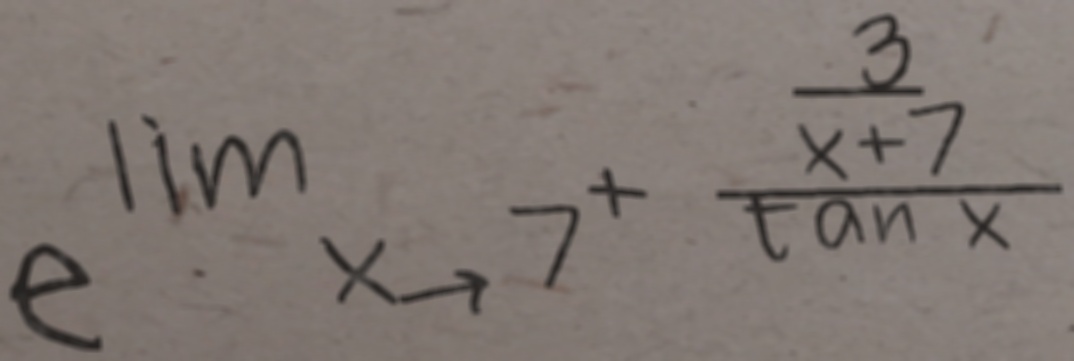 e^{\lim_{x \to 7^+} \frac{\frac{3}{x+7}}{\tan x}}